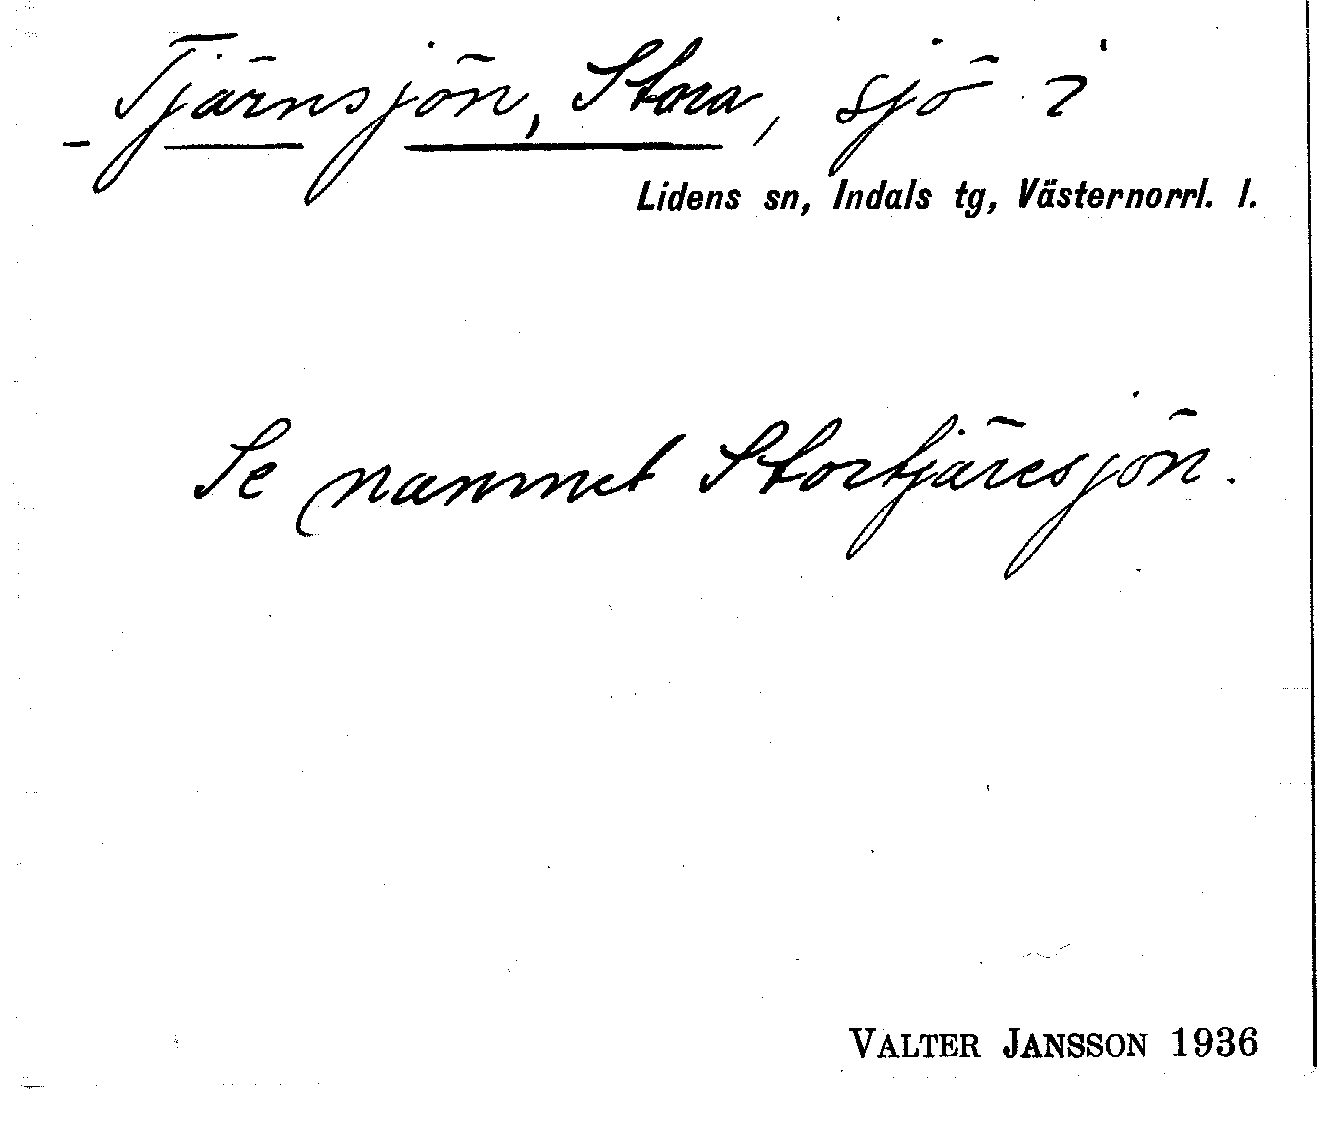 Tjärnsjön, Stora, sjö i
Lidens sn, Indals tg, Västernorrl. l.
Se namnet Stortjäresjön.
VALTER JANSSON 1936